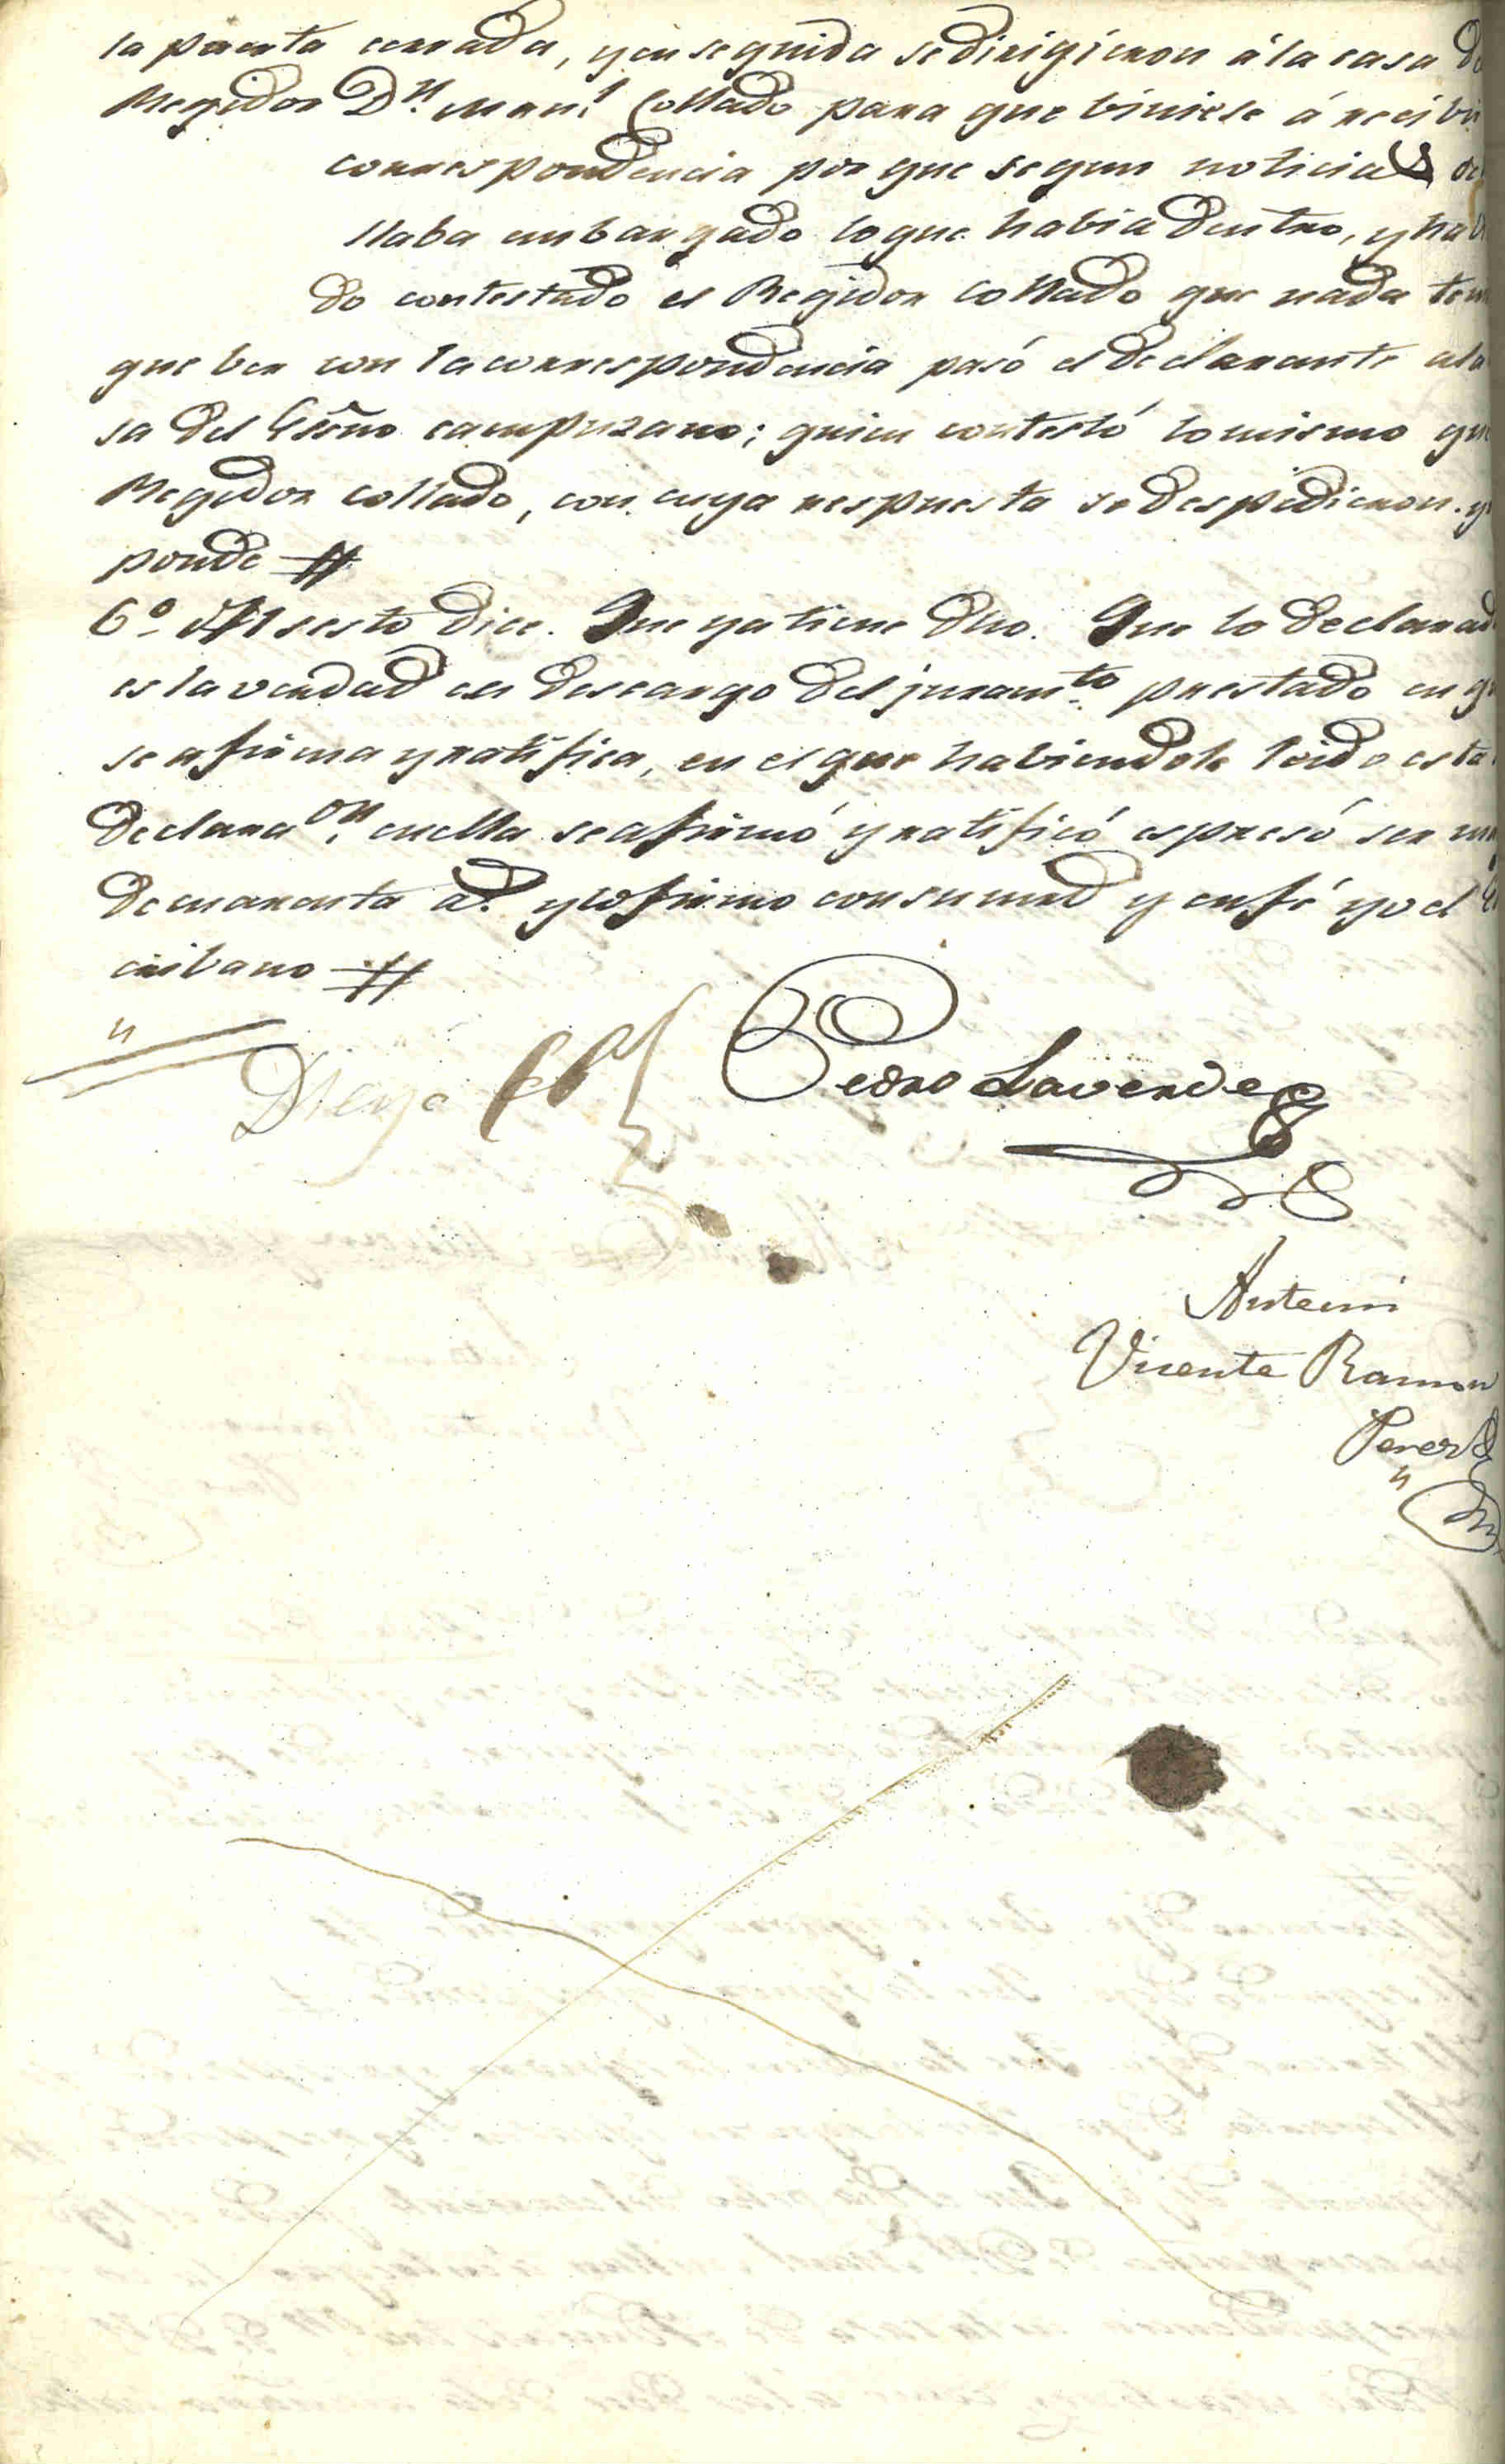 la puerta cerrada, y en seguida se dirigieron á la casa
Regidor Dn. Manl. Collado para que biniese á recibir
correspondencia por que segun noticias
llaba embargado lo que habia dentro, y hab
do contestado el Regidor Collado que nada ten
que ber con la correspondencia pasó el declarante a la
sa del Esno campuzano; quien contestó lo mismo que
Regidor collado, con cuya respuesta se despidieron. y
ponde
6º Al sesto dice. Que ya tiene dho. Que lo declarad
es la verdad en descargo del juramto prestado en q
se afirma y ratifica, en el que habiendole leido esta
declaraon. en ella se afirmó y ratificó espresó ser m
de cuarenta as y lo firmo con su md y en fé yo el
cribano
Diego
Pedro Laverde
Antemi
Vicente Ramon
Perez